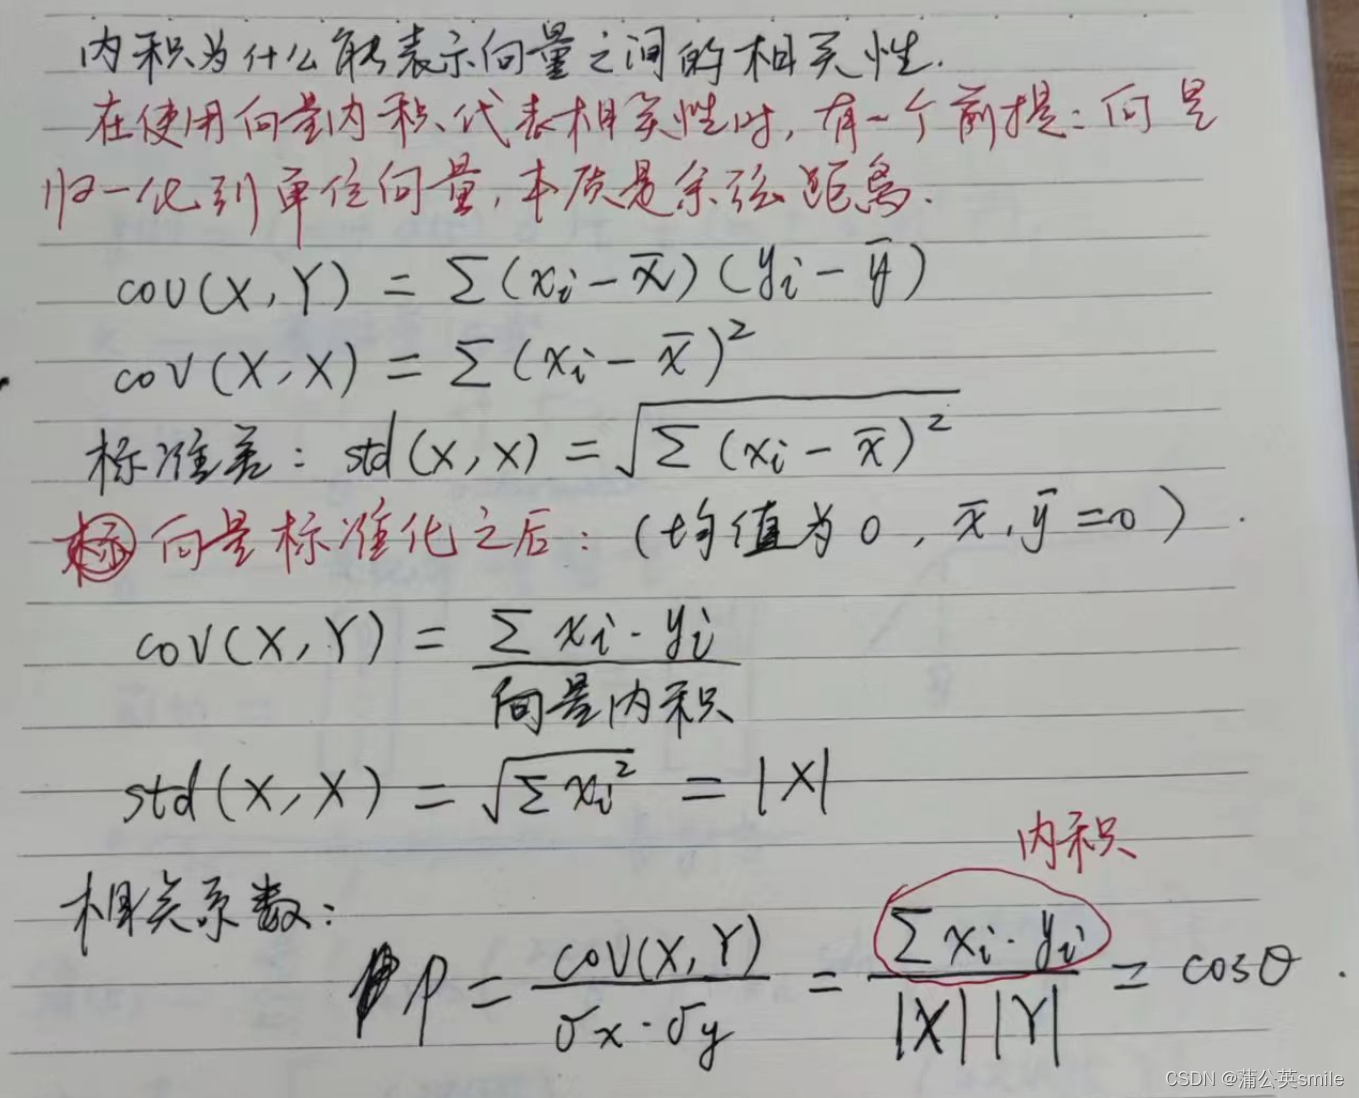 内积为什么能表示向量之间的相关性.
在使用向量内积代表相关性时,有一个前提:向量
归一化到单位向量,本质是余弦距离.
cov(X,Y) = Σ(xi-x̄)(yi-ȳ)
cov(X,X) = Σ(xi-x̄)²
标准差: std(X,X) = √Σ(xi-x̄)²
标 向量标准化之后: (均值为0, x̄,ȳ=0).
cov(X,Y) = Σxi·yi
向量内积
std(X,X) = √Σxi² = |X|
内积
相关系数:
ρ = cov(X,Y) / σx·σy = Σxi·yi / |X||Y| = cosθ.
CSDN @蒲公英smile